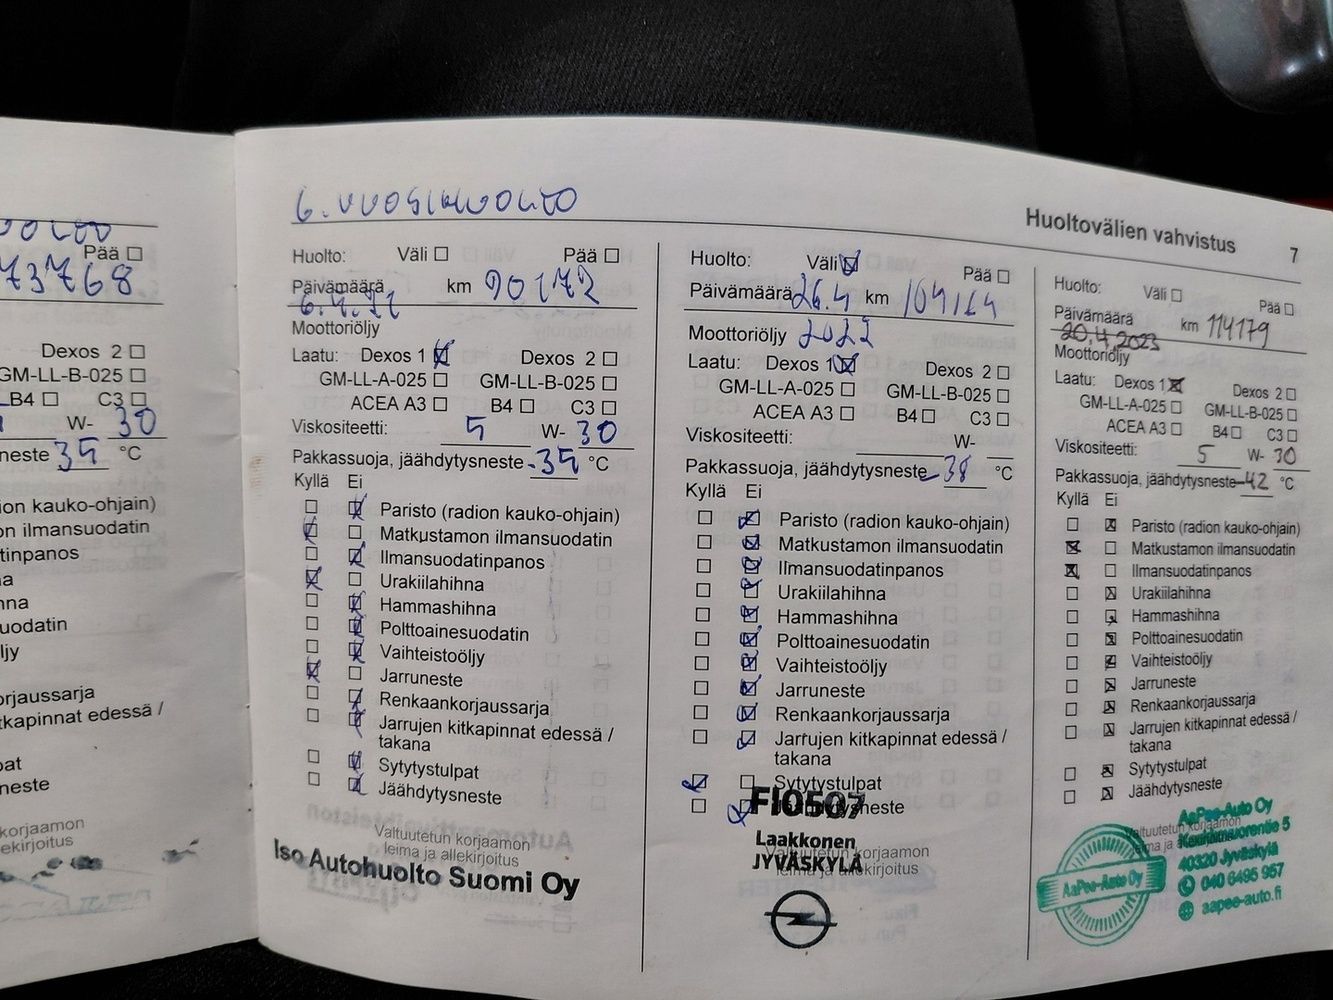 73768
Pää ☐
Dexos 2 ☐
GM-LL-B-025 ☐
B4 ☐ C3 ☐
W- 30
neste 35 °C
ion kauko-ohjain)
on ilmansuodatin
tinpanos
na
hna
uodatin
ljy
orjaussarja
tkapinnat edessä /
pat
neste
korjaamon
ekirjoitus
6. VUOSIHUOLTO
Huoltovälien vahvistus 7
Huolto: Väli ☐ Pää ☐
Päivämäärä km 90172
Moottoriöljy
Laatu: Dexos 1 ☒ Dexos 2 ☐
GM-LL-A-025 ☐ GM-LL-B-025 ☐
ACEA A3 ☐ B4 ☐ C3 ☐
Viskositeetti: 5 W- 30
Pakkassuoja, jäähdytysneste -35 °C
Kyllä Ei
☐ ☒ Paristo (radion kauko-ohjain)
☒ ☐ Matkustamon ilmansuodatin
☐ ☒ Ilmansuodatinpanos
☒ ☐ Urakiilahihna
☐ ☒ Hammashihna
☐ ☒ Polttoainesuodatin
☐ ☒ Vaihteistoöljy
☒ ☐ Jarruneste
☐ ☒ Renkaankorjaussarja
☐ ☒ Jarrujen kitkapinnat edessä /
takana
☐ ☒ Sytytystulpat
☐ ☒ Jäähdytysneste
Valtuutetun korjaamon
leima ja allekirjoitus
Iso Autohuolto Suomi Oy
Huolto: Väli ☒ Pää ☐
Päivämäärä 26.4 km 104114
Moottoriöljy 2022
Laatu: Dexos 1 ☒ Dexos 2 ☐
GM-LL-A-025 ☐ GM-LL-B-025 ☐
ACEA A3 ☐ B4 ☐ C3 ☐
Viskositeetti: W-
Pakkassuoja, jäähdytysneste -38 °C
Kyllä Ei
☐ ☒ Paristo (radion kauko-ohjain)
☐ ☒ Matkustamon ilmansuodatin
☐ ☒ Ilmansuodatinpanos
☐ ☒ Urakiilahihna
☐ ☒ Hammashihna
☐ ☒ Polttoainesuodatin
☐ ☒ Vaihteistoöljy
☐ ☒ Jarruneste
☐ ☒ Renkaankorjaussarja
☐ ☒ Jarrujen kitkapinnat edessä /
takana
☒ ☐ Sytytystulpat
☐ ☒ Jäähdytysneste
FI0507
Laakkonen
JYVÄSKYLÄ
Valtuutetun korjaamon
leima ja allekirjoitus
Huolto: Väli ☐ Pää ☐
Päivämäärä km 114179
20.4.2023
Moottoriöljy
Laatu: Dexos 1 ☒ Dexos 2 ☐
GM-LL-A-025 ☐ GM-LL-B-025 ☐
ACEA A3 ☐ B4 ☐ C3 ☐
Viskositeetti: 5 W- 30
Pakkassuoja, jäähdytysneste -42 °C
Kyllä Ei
☐ ☒ Paristo (radion kauko-ohjain)
☒ ☐ Matkustamon ilmansuodatin
☒ ☐ Ilmansuodatinpanos
☐ ☒ Urakiilahihna
☐ ☒ Hammashihna
☐ ☒ Polttoainesuodatin
☐ ☒ Vaihteistoöljy
☐ ☒ Jarruneste
☐ ☒ Renkaankorjaussarja
☐ ☒ Jarrujen kitkapinnat edessä /
takana
☐ ☒ Sytytystulpat
☐ ☒ Jäähdytysneste
Valtuutetun korjaamon
leima ja
AaPee-Auto Oy
AaPee-Auto Oy
5
40320 Jyväskylä
040 6495 957
aapee-auto.fi